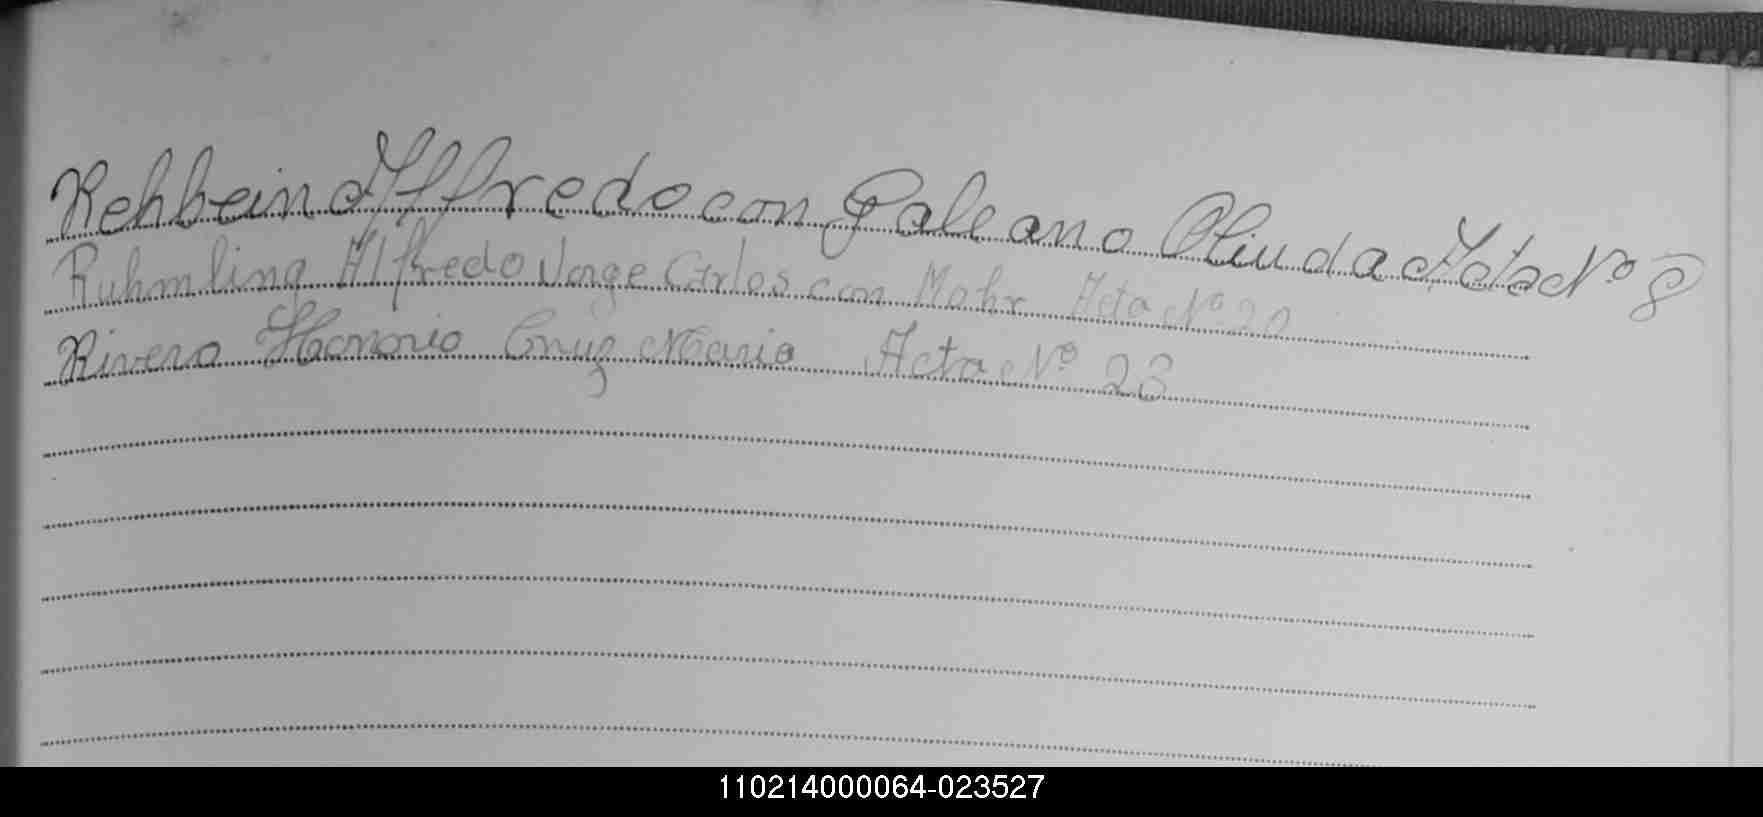 Rehbein Alfredo con Galeano Oliuda Acta Nº 8
Ruhmling Alfredo Jorge Carlos con Mohr Acta Nº 20
Rivero Honorio Cruz Maria Acta Nº 23
110214000064-023527